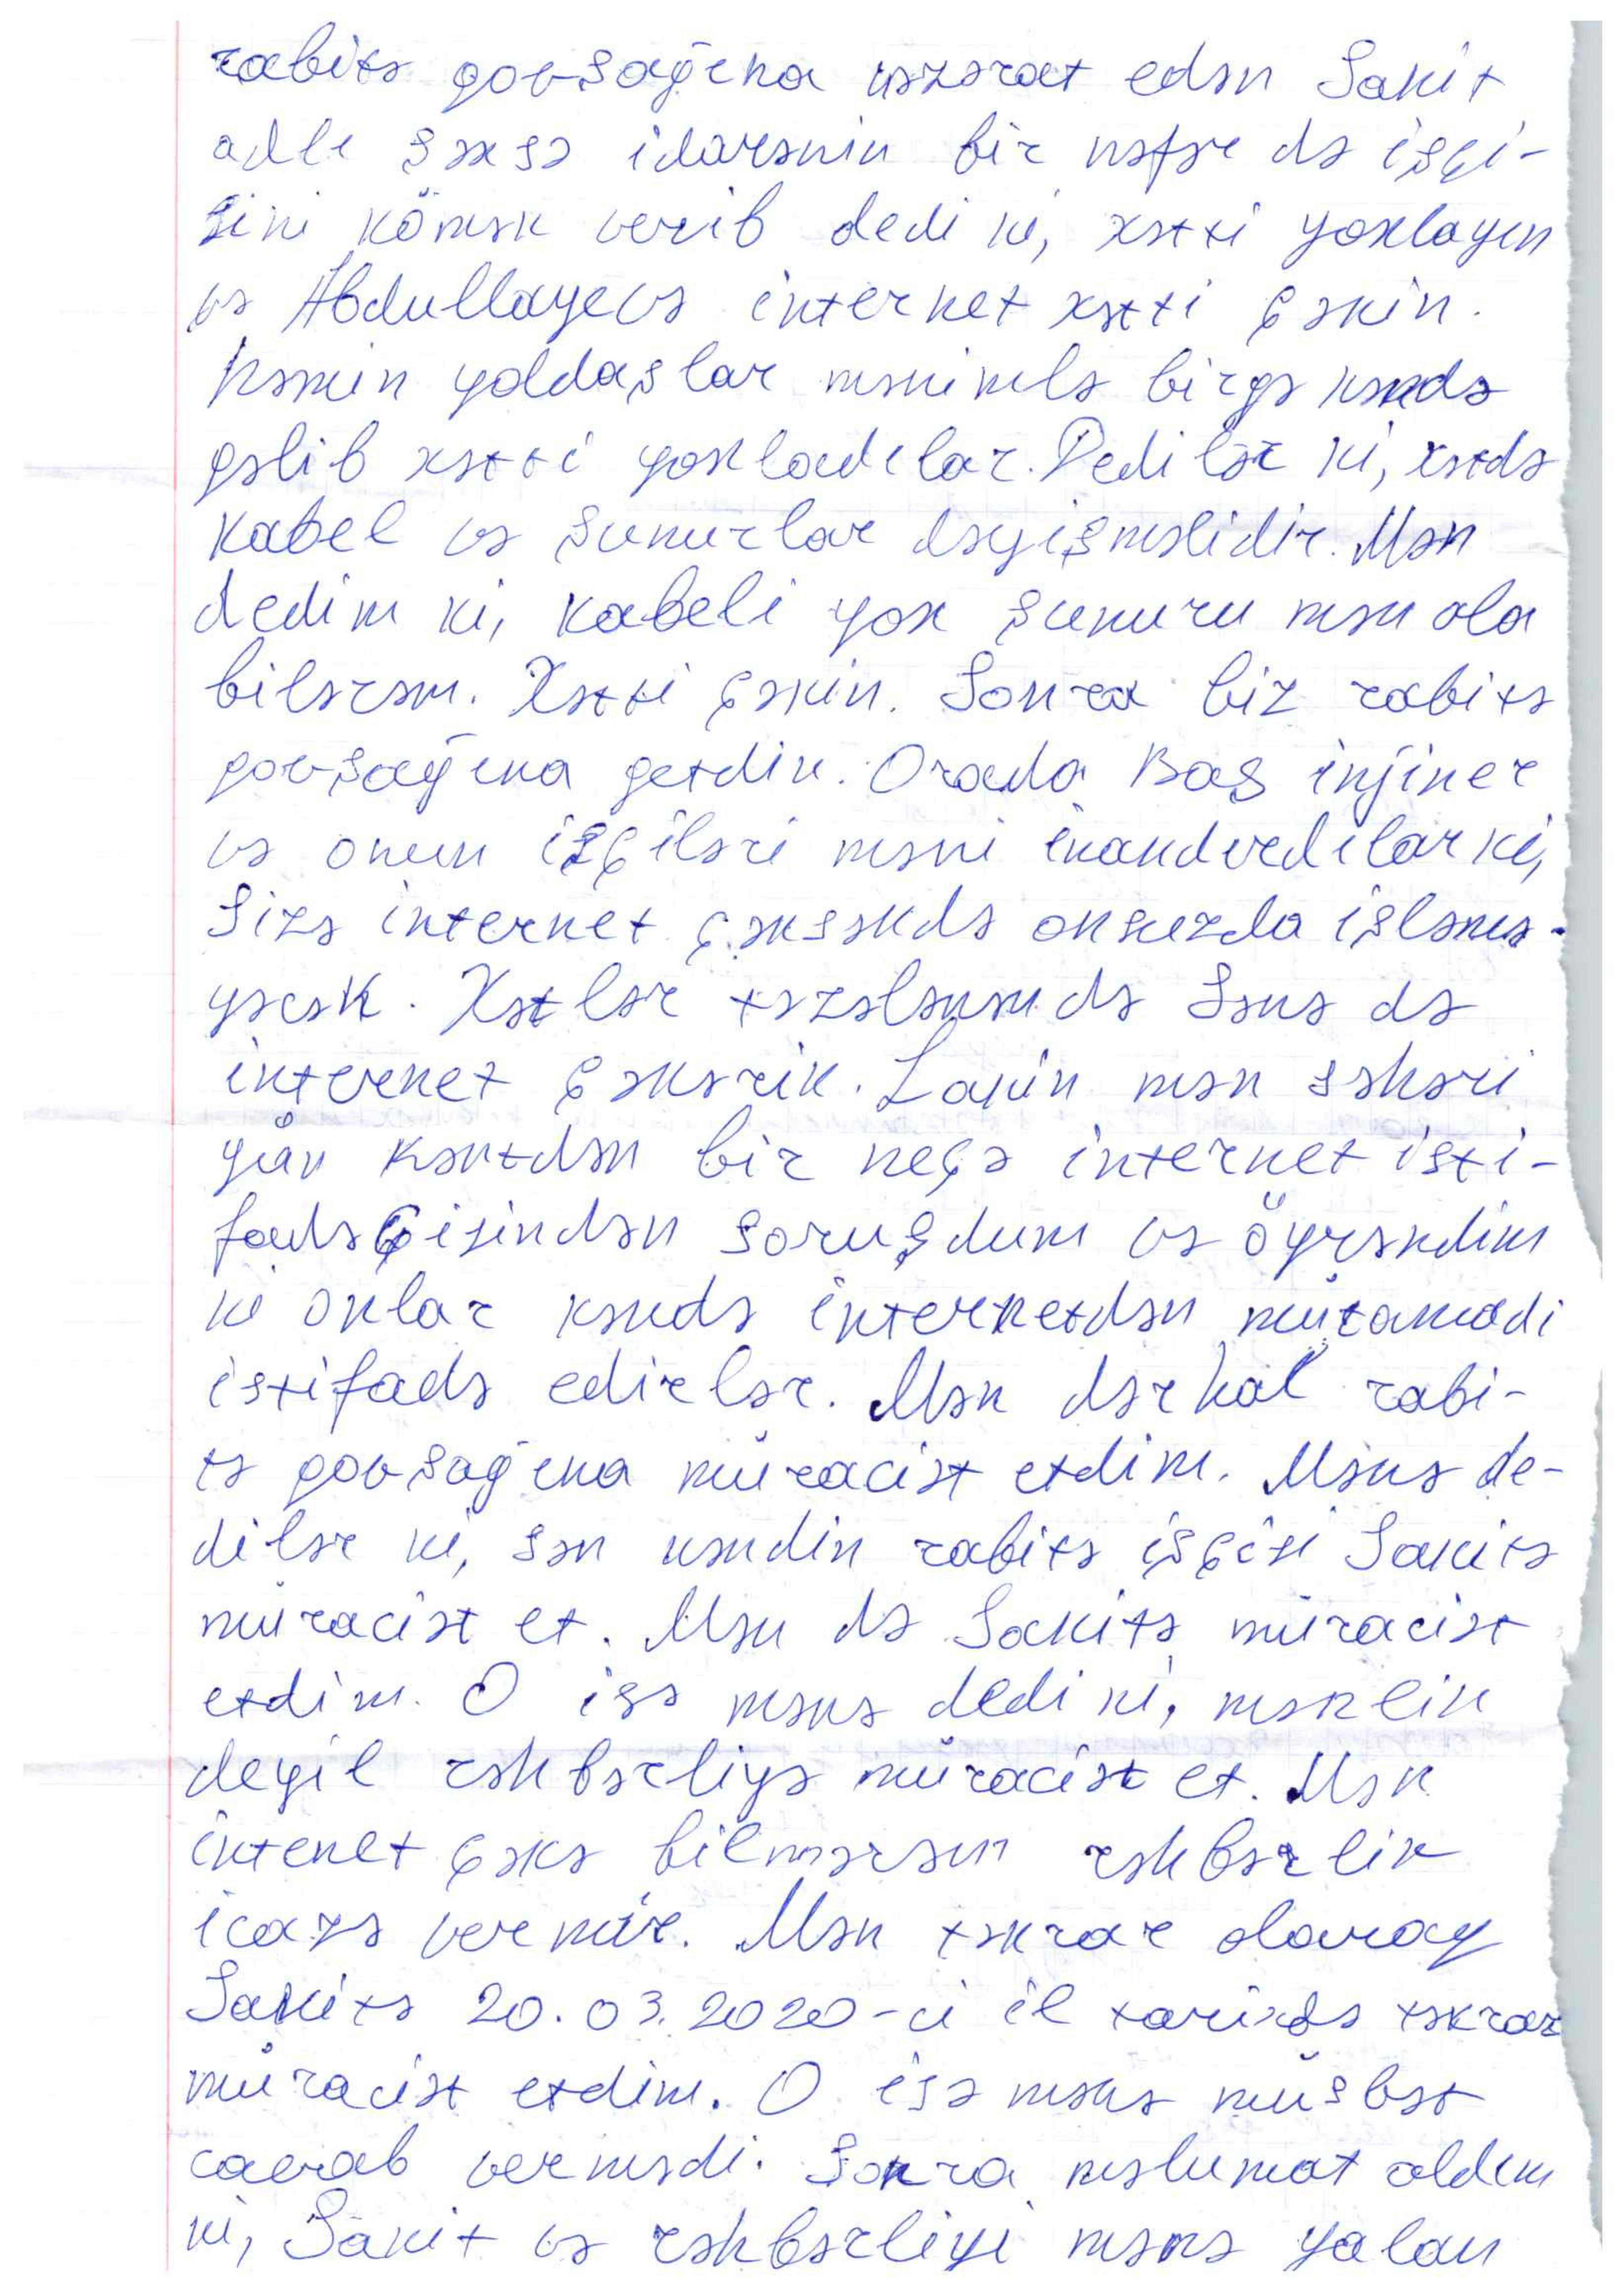 rabitə qovşağına nəzarət edən Sakit
adlı şəxsə idarənin bir nəfər də işçi-
sini kömək verib dedi ki, xətti yoxlayın
və Abdullayevə internet xətti çəkin.
Həmin yoldaşlar mənimlə birgə kəndə
gəlib xətti yoxladılar. Dedilər ki, xətdə
kabel və şunurlar dəyişməlidir. Mən
dedim ki, kabeli yox şunuru mən ala
bilərəm. Xətti çəkin. Sonra biz rabitə
qovşağına getdik. Orada Baş injiner
və onun işçiləri məni inandırdılar ki,
Sizə internet çəksəkdə onsuzda işləmə-
yəcək. Xətlər təzələnəndə Sənə də
internet çəkərik. Lakin mən səhəri
gün kənddən bir neçə internet isti-
fadəçisindən soruşdum və öyrəndim
ki onlar kəndə internetdən mütamadi
istifadə edirlər. Mən dərhal rabi-
tə qovşağına müraciət etdim. Mənə de-
dilər ki, sən kəndin rabitə işçisi Sakitə
müraciət et. Mən də Sakitə müraciət
etdim. O isə mənə dedi ki, mənlik
deyil rəhbərliyə müraciət et. Mən
intenet çəkə bilmərəm rəhbərlik
icazə vermir. Mən təkrar olaraq
Sakitə 20.03.2020-ci il tarixdə təkrar
müraciət etdim. O isə mənə müsbət
cavab vermədi. Sonra məlumat aldım
ki, Sakit və rəhbərliyi mənə yalan